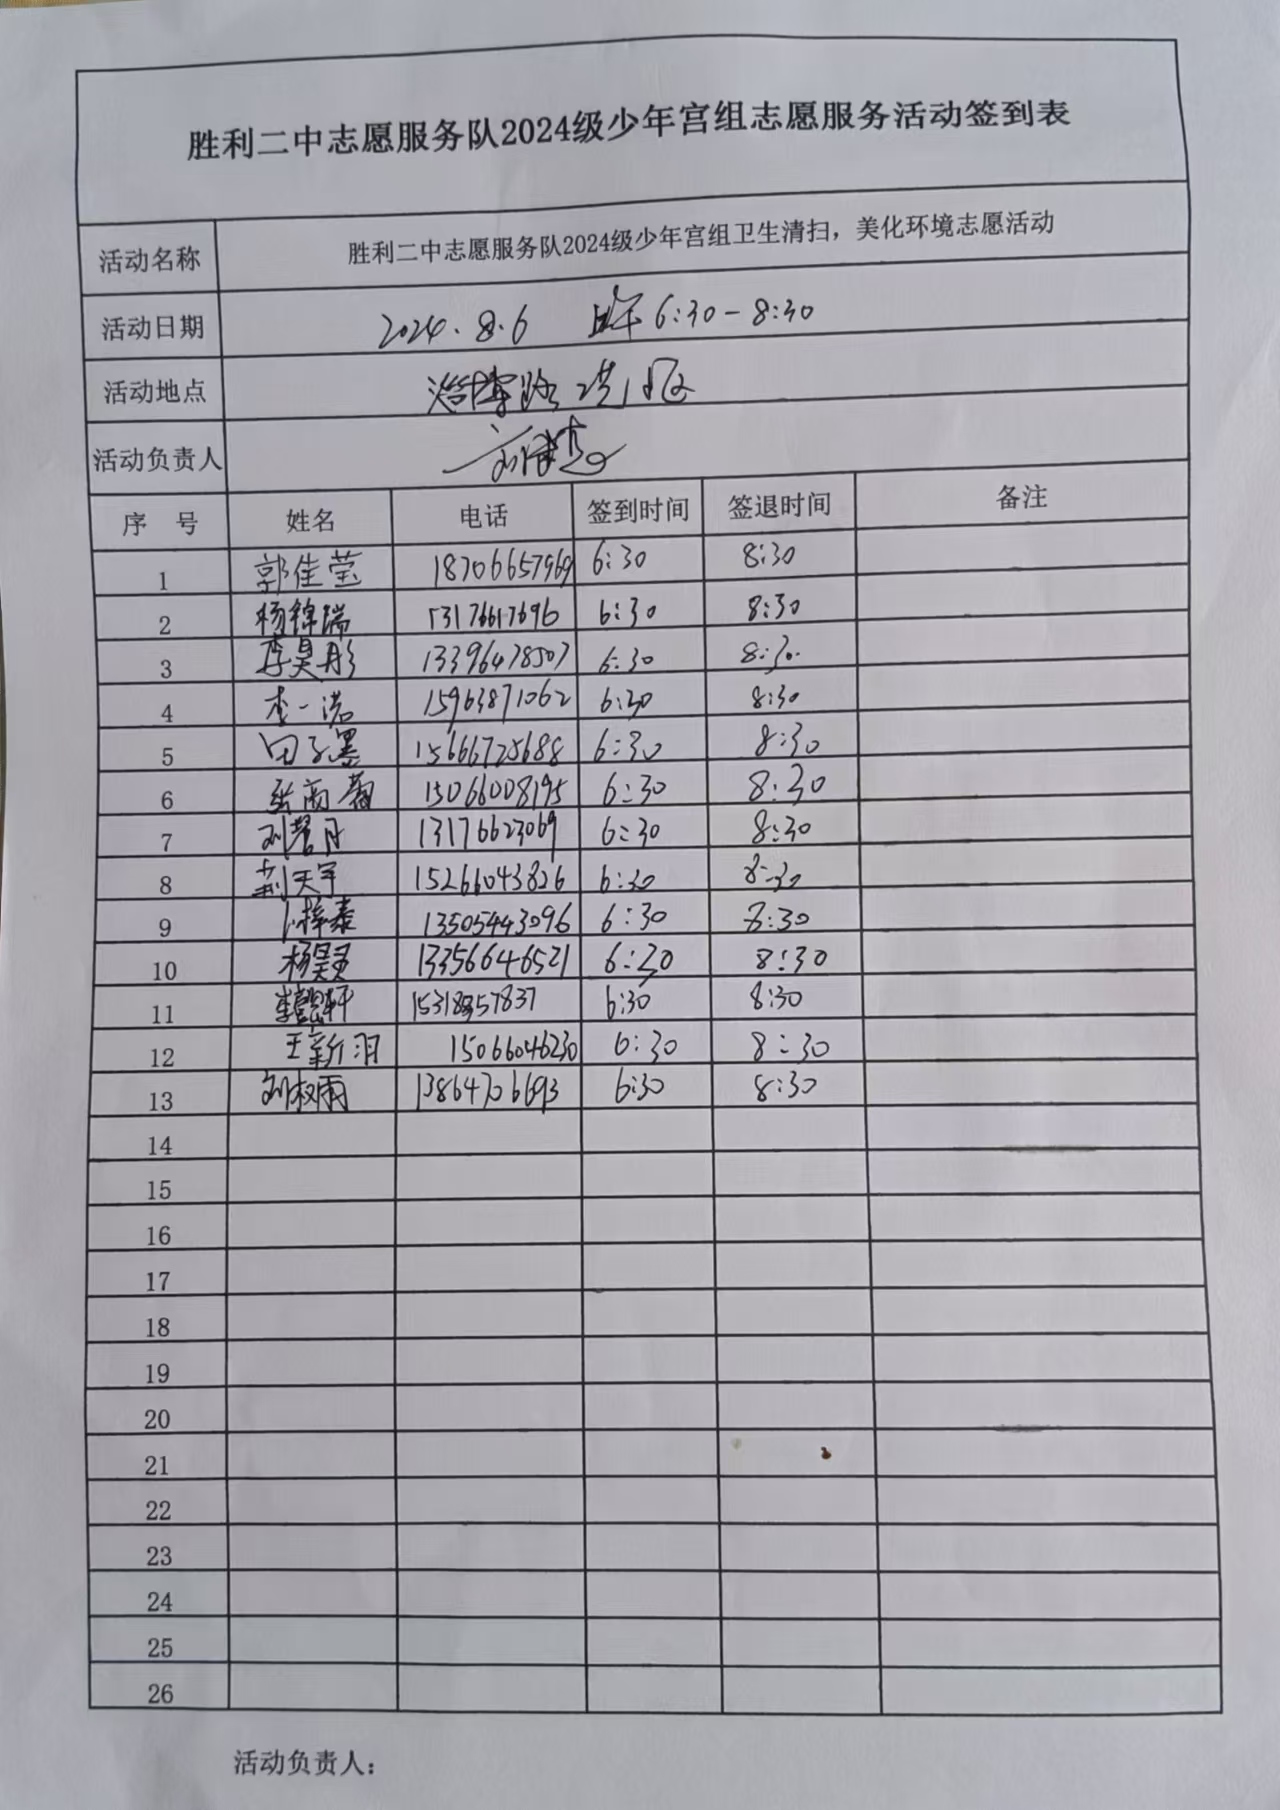 胜利二中志愿服务队2024级少年宫组志愿服务活动签到表
活动名称 胜利二中志愿服务队2024级少年宫组卫生清扫，美化环境志愿活动
活动日期 2024.8.6 上午 6:30-8:30
活动地点 淄博路
活动负责人
序 号 姓名 电话 签到时间 签退时间 备注
1 郭佳莹 18706657969 6:30 8:30
2 杨锦瑞 13176617696 6:30 8:30
3 李昊彤 13396478507 6:30 8:30
4 李一诺 15963871062 6:30 8:30
5 田子墨 15666725688 6:30 8:30
6 张 15066008195 6:30 8:30
7 刘 13176623069 6:30 8:30
8 荆天宇 15266043826 6:30 8:30
9 梓泰 13505443096 6:30 8:30
10 杨昊 13356646521 6:30 8:30
11 李懿轩 6:30 8:30
12 王新羽 15066046230 6:30 8:30
13 刘 雨 13864706693 6:30 8:30
14
15
16
17
18
19
20
21
22
23
24
25
26
活动负责人：